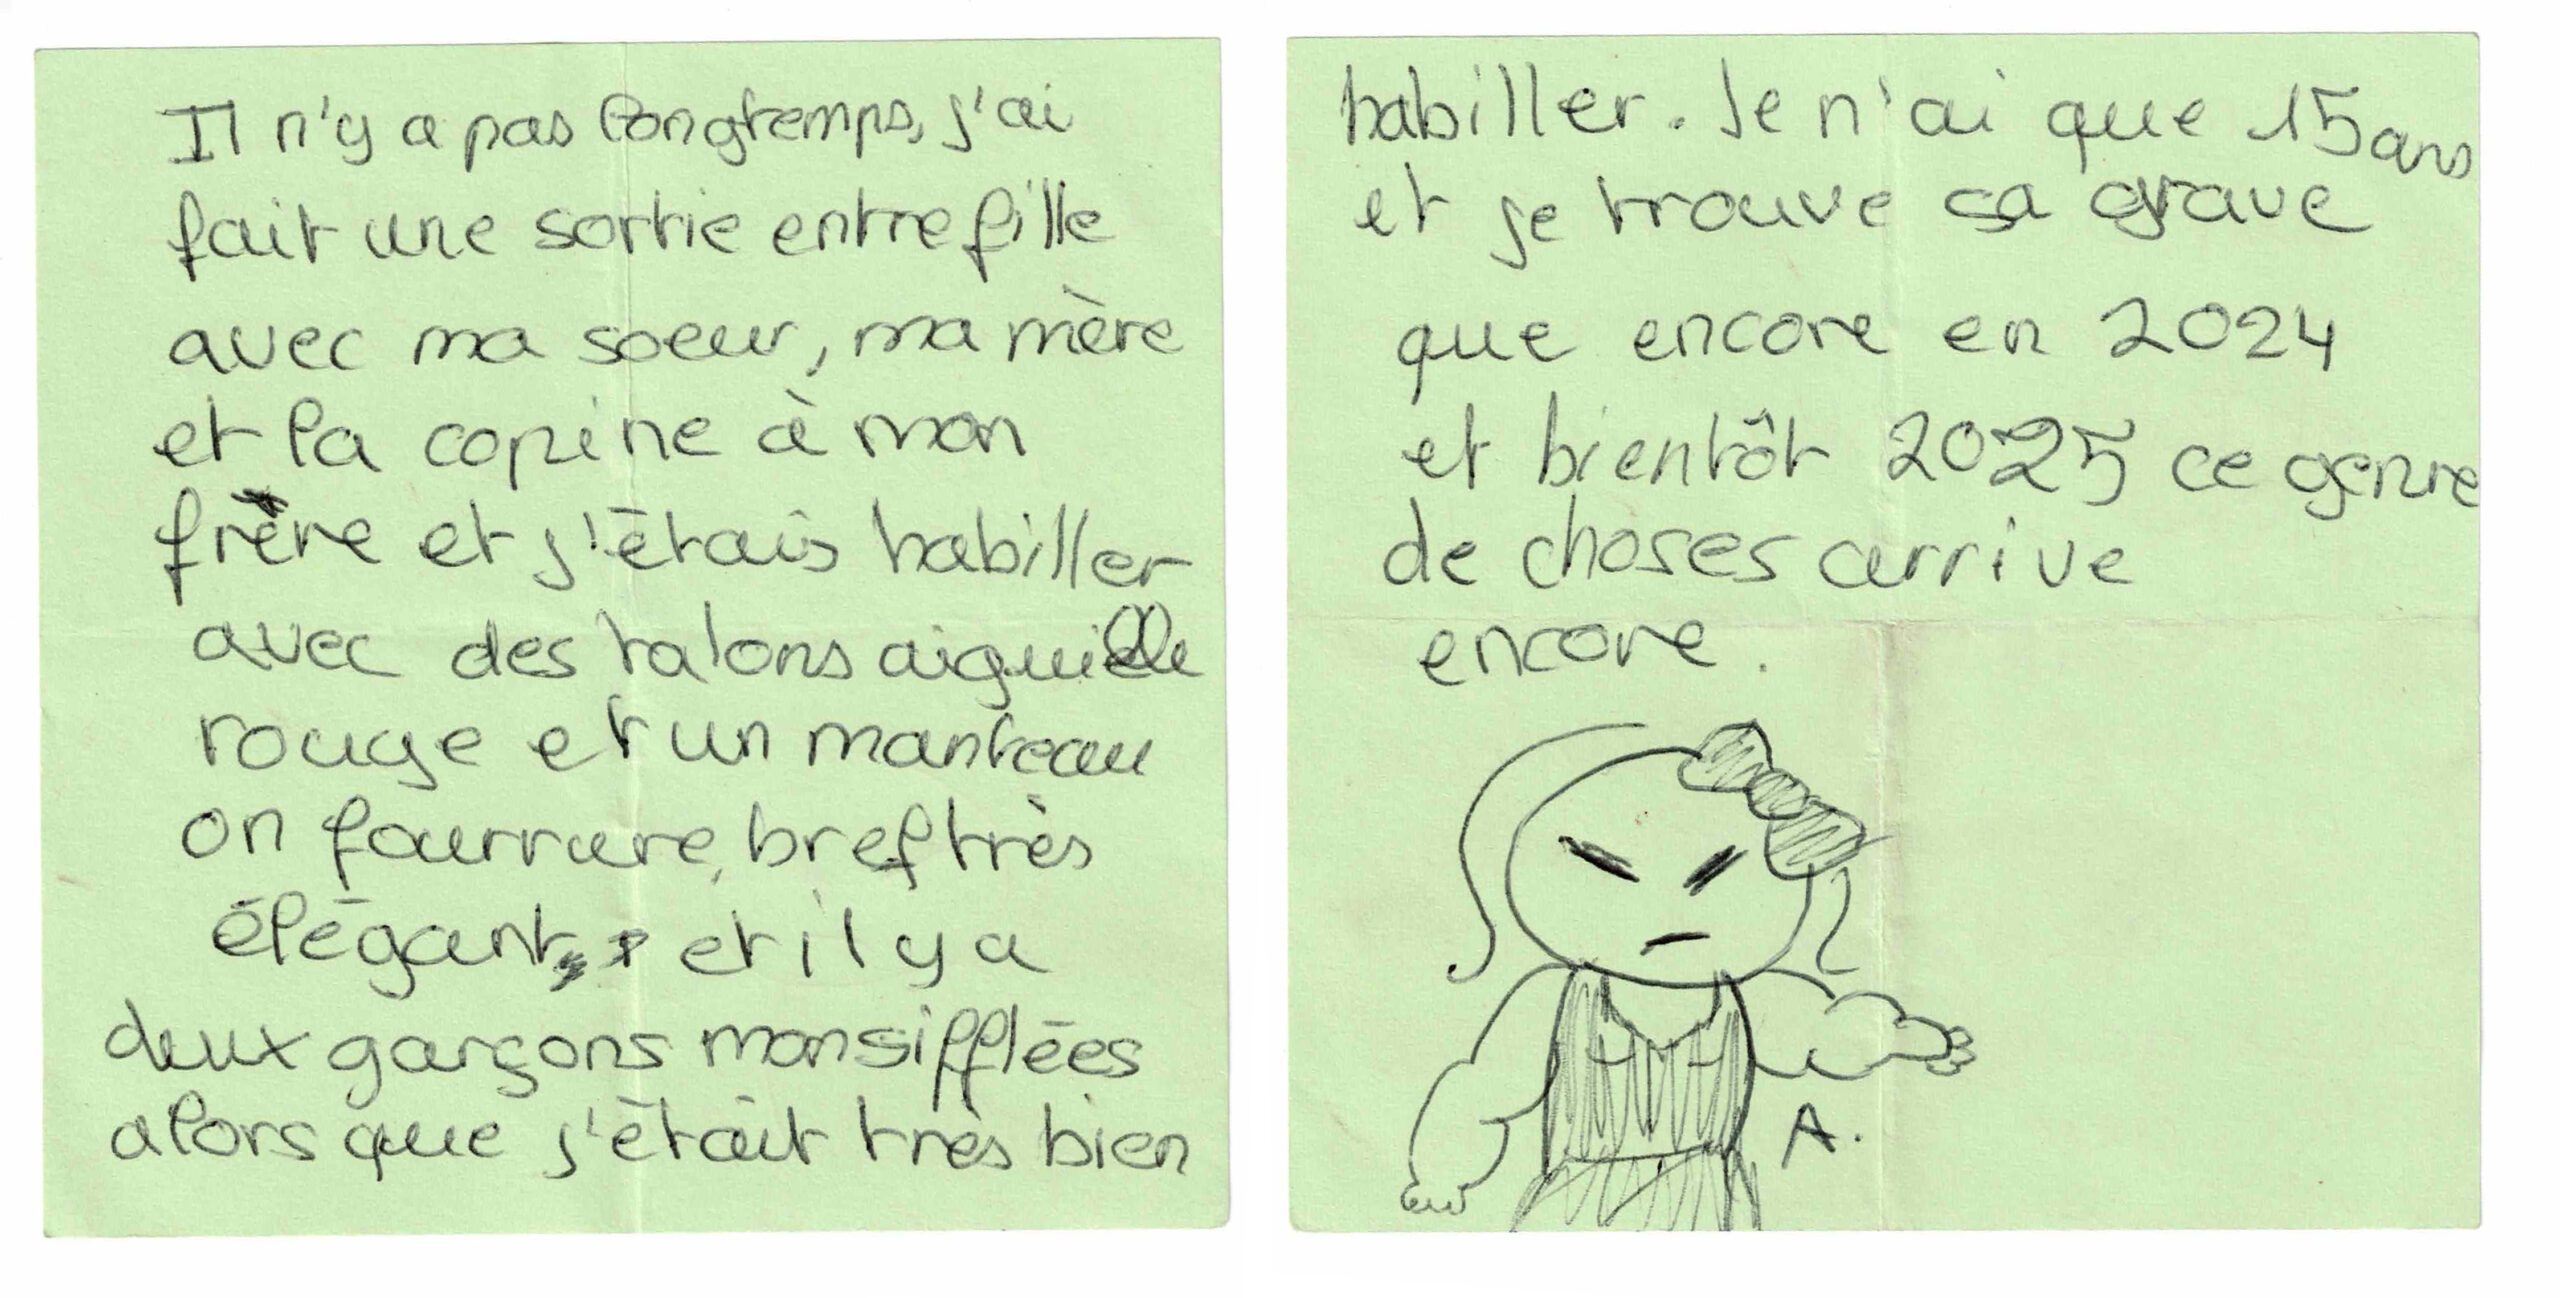 Il n'y a pas longtemps, j'ai
fait une sortie entre fille
avec ma soeur, ma mère
et la copine à mon
frère et j'étais habiller
avec des talons aiguille
rouge et un manteau
on fourrure, bref très
élégant, et il y a
deux garçons mon sifflées
alors que j'était très bien
habiller. Je n'ai que 15 ans
et je trouve sa grave
que encore en 2024
et bientôt 2025 ce genre
de choses arrive
encore.
A.